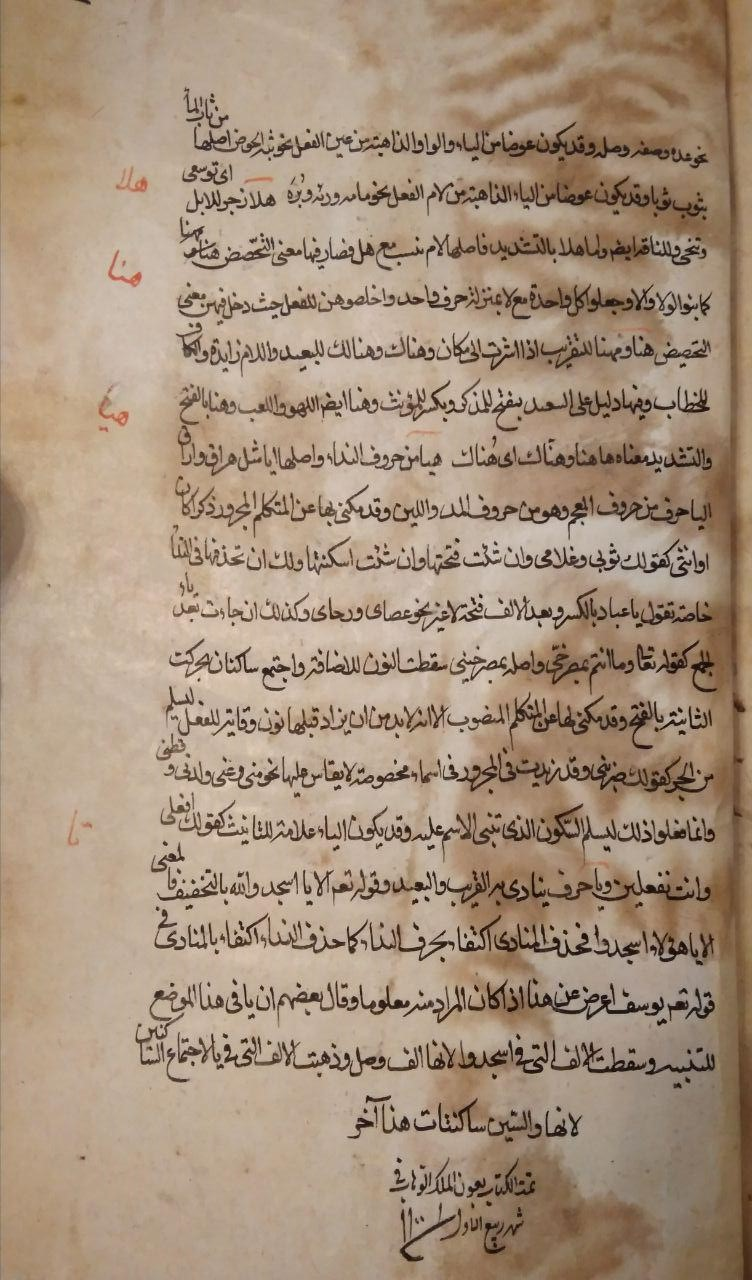 نحو عدة وصفة وصلة وقد يكون عوضا من الياء والواو الذاهبة من عين الفعل نحو ثبة الحوض اصلها من ثاب الماء
يثوب ثوبا وقد يكون عوضا من الياء الذاهبة من لام الفعل نحو مائة ورئة وبرة هلا زجر للابل اى توسعى
هلا
وتنحى وللناقة ايضا واما هلا بالتشديد فاصلها لام بنيت مع هل فصار فيها معنى التخصيص هنا
هنا
كما بنوا لولا والا وجعلوا كل واحدة مع لا بمنزلة حرف واحد واخلصوهن للفعل حيث دخل فيهن معنى
التخصيص هنا وههنا للتقريب اذا اشرت الى مكان وهناك وهنالك للبعيد واللام زايدة والكاف
للخطاب وفيها دليل على البعيد بفتح للمذكر وبكسر للمؤنث وهنا ايضا اللهو واللعب وهنا بالفتح
هيا
والتشديد معناه هاهنا وهناك اى هناك هيا من حروف النداء واصلها ايا مثل هراق واراق
اليا حرف من حروف المعجم وهو من حروف المد واللين وقد يكنى بها عن المتكلم المجرور ذكرا كان
او انثى كقولك ثوبى وغلامى وان شئت فتحتها وان شئت اسكنتها ولك ان تحذفها فى النداء
خاصة تقول يا عباد بالكسر وبعد الالف فتحة لا غير نحو عصاى ورحاى وكذلك ان جاءت بعد ياء
الجمع كقوله تعا وما انتم بمصرخى واصله بمصرخينى سقطت النون للاضافة واجتمع ساكنان فحركت
الثانية بالفتح وقد يكنى بها عن المتكلم المنصوب الا انه لا بد من ان يزاد قبلها نون وقاية للفعل ليسلم
من الجر كقولك ضربنى وقد زيدت فى المجرور فى اسماء مخصوصة لا يقاس عليها نحو منى وعنى ولدنى وقطنى
وانما فعلوا ذلك ليسلم السكون الذى تبنى الاسم عليه وقد يكون الياء علامة للتانيث كقولك افعلى
يا
وانت تفعلين ويا حرف ينادى به القريب والبعيد وقوله تعم الا يا اسجدوا لله بالتخفيف فالمعنى
الا يا هؤلاء اسجدوا فحذف المنادى اكتفاء بحرف النداء كما حذف النداء اكتفاء بالمنادى فى
قوله تعم يوسف اعرض عن هذا اذا كان المراد منه معلوما وقال بعضهم ان يا فى هذا الموضع
للتنبيه وسقطت الالف التى فى اسجدوا لانها الف وصل وذهبت الالف التى فى يا لاجتماع الساكنين
لانها والسين ساكنتان هذا آخر
تمت الكتاب بعون الملك الوهاب فى
شهر ربيع الاول